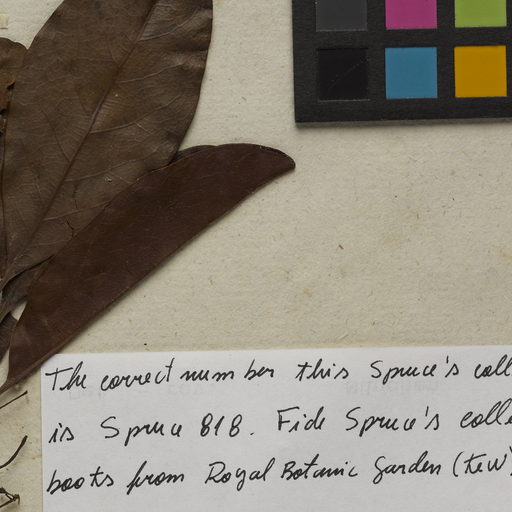 The correct number this Spruce's coll
is Spruce 818. Fide Spruce's colle
books from Royal Botanic Garden (Kew)